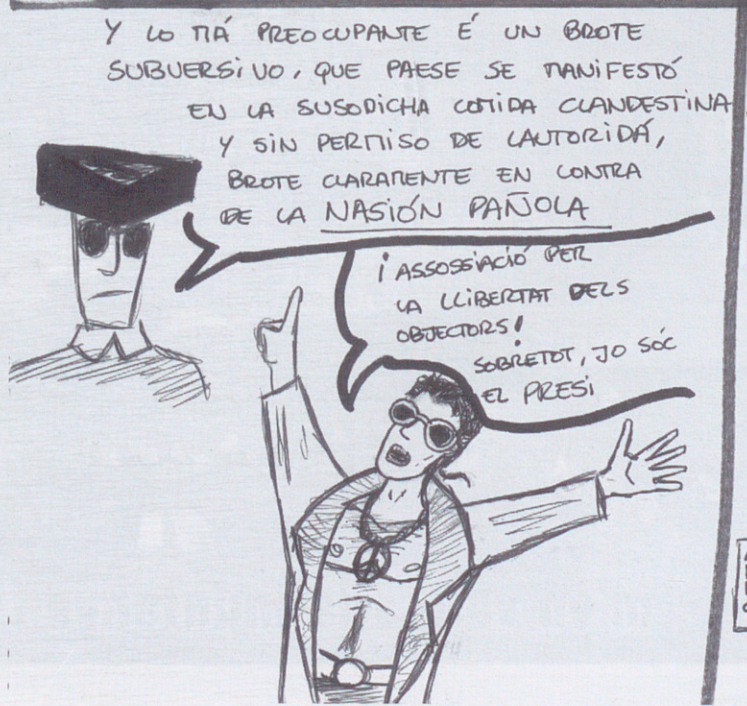 Y LO MÁ PREOCUPANTE É UN BROTE
SUBVERSIVO, QUE PAESE SE MANIFESTÓ
EN LA SUSODICHA COMIDA CLANDESTINA
Y SIN PERMISO DE LAUTORIDÁ,
BROTE CLARAMENTE EN CONTRA
DE LA NASIÓN PAÑOLA
¡ASSOSSIACIÓ PER
LA LLIBERTAT DELS
OBJECTORS!
SOBRETOT, JO SÓC
EL PRESI